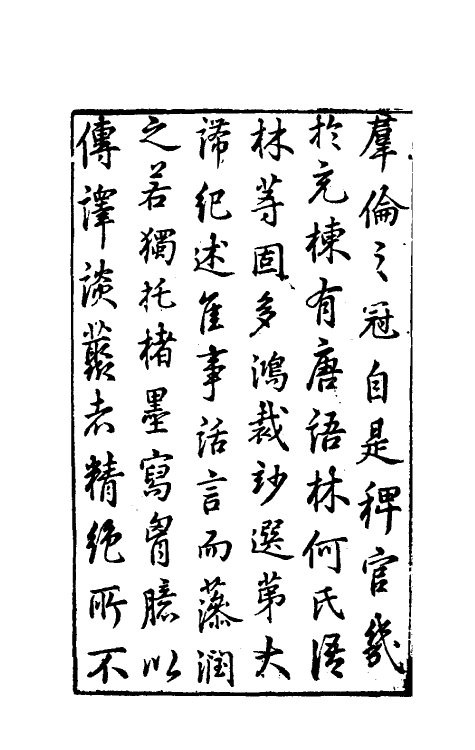 羣倫之冠自是稗官幾
於充棟有唐語林何氏語
林等固多鴻裁妙選第大
諦紀述隹事話言而藻潤
之若獨托楮墨寫胷臆以
傳譯談叢者精絶所不